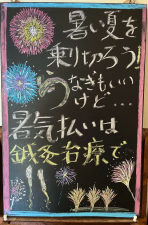 暑い夏を
乗り切ろう!
うなぎもいい
けど...
暑気払いは
鍼灸治療で